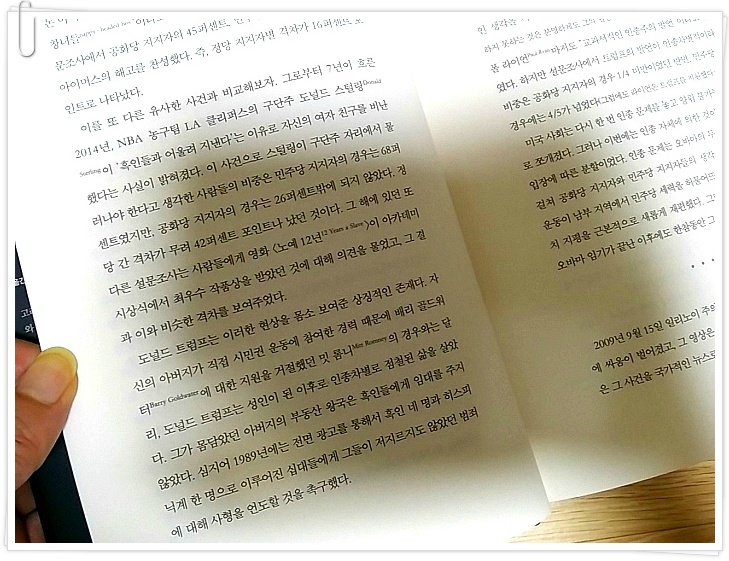 창녀들nappy-headed hos
문조사에서 공화당 지지자의 45퍼센트, 민주당 지지자의 16퍼센트로
아이머스의 해고를 찬성했다. 즉, 정당 지지자별 격차가 16퍼센트 포
인트로 나타났다.
이를 또 다른 유사한 사건과 비교해보자. 그로부터 7년이 흐른
2014년, NBA 농구팀 LA 클리퍼스의 구단주 도널드 스털링Donald
Sterling이 '흑인들과 어울려 지낸다'는 이유로 자신의 여자 친구를 비난
했다는 사실이 밝혀졌다. 이 사건으로 스털링이 구단주 자리에서 물
러나야 한다고 생각한 사람들의 비중은 민주당 지지자의 경우는 68퍼
센트였지만, 공화당 지지자의 경우는 26퍼센트밖에 되지 않았다. 정
당 간 격차가 무려 42퍼센트 포인트나 났던 것이다. 그 해에 있던 또
다른 설문조사는 사람들에게 영화 〈노예 12년12 Years a Slave〉이 아카데미
시상식에서 최우수 작품상을 받았던 것에 대해 의견을 물었고, 그 결
과 이와 비슷한 격차를 보여주었다.
도널드 트럼프는 이러한 현상을 몸소 보여준 상징적인 존재다. 자
신의 아버지가 직접 시민권 운동에 참여한 경력 때문에 배리 골드워
터Barry Goldwater에 대한 지원을 거절했던 밋 롬니Mitt Romney의 경우와는 달
리, 도널드 트럼프는 성인이 된 이후로 인종차별로 점철된 삶을 살았
다. 그가 몸담았던 아버지의 부동산 왕국은 흑인들에게 임대를 주지
않았다. 심지어 1989년에는 전면 광고를 통해서 흑인 네 명과 히스패
닉계 한 명으로 이루어진 십대들에게 그들이 저지르지도 않았던 범죄
에 대해 사형을 언도할 것을 촉구했다.
하지 못하는 것은 분명하게도
폴 라이언Paul Ryan마저도 "교과서적인 인종주의 발언
였다. 하지만 설문조사에서 트럼프의 발언이 인종차별적이라
비중은 공화당 지지자의 경우 1/4 미만이었던 반면, 민주당
경우에는 4/5가 넘었다. 그럼에도 라이언은 트럼프를 지원했다
미국 사회는 다시 한 번 인종 문제를 놓고 양립 불가
로 쪼개졌다. 그러나 이번에는 인종 자체에 의한 것이
입장에 따른 분할이었다. 인종 문제는 오바마의 두
걸쳐 공화당 지지자와 민주당 지지자들의 생각
운동이 남부 지역에서 민주당 세력을 허물어뜨
치 지평을 근본적으로 새롭게 재편했다. 그
오바마 임기가 끝난 이후에도 한참동안 그
• • •
2009년 9월 15일 일리노이 주의
에 싸움이 벌어졌고, 그 영상은
은 그 사건을 국가적인 뉴스로